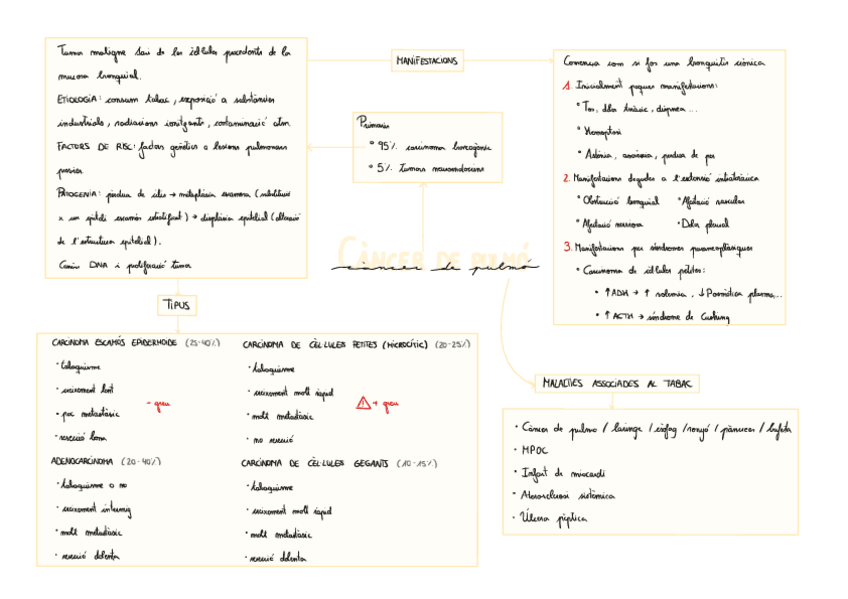 Tumor maligne sorí de les cèl·lules procedents de la
mucosa bronquial.
ETIOLOGIA: consum tabac, exposició a substàncies
industrials, radiacions ionitzants, contaminació atm.
FACTORS DE RISC: factors genètics o lesions pulmonars
prèvies
PATOGENIA: pèrdua de cilis → metaplàsia escamosa (substitució
x un epiteli escamós estratificat) → displàsia epitelial (alteració
de l'estructura epitelial).
Canvis DNA i proliferació tumor
MANIFESTACIONS
Primaris
• 95% carcinoma broncogènic
• 5% tumors neuroendocrins
CÀNCER DE PULMÓ
càncer de pulmó
Comença com si fos una bronquitis crònica
1. Inicialment poques manifestacions:
• Tos, dolor toràcic, dispnea...
• Hemoptisi
• Astènia, anorèxia, pèrdua de pes
2. Manifestacions degudes a l'extensió intratoràcica
• Obstrucció bronquial • Afectació vascular
• Afectació nerviosa • Dolor pleural
3. Manifestacions per síndromes paraneoplàsiques
• Carcinoma de cèl·lules petites:
• ↑ADH → ↑ volèmia, ↓ Posmòtica plasma...
• ↑ACTH → síndrome de Cushing
TIPUS
CARCINOMA ESCAMÓS EPIDERMOIDE (25-40%)
• tabaquisme
• creixement lent
• poc metastàsic
• resecció bona
- greu
CARCINOMA DE CÈL·LULES PETITES (MICROCÍTIC) (20-25%)
• tabaquisme
• creixement molt ràpid
• molt metastàsic
• no resecció
+ greu
ADENOCARCINOMA (20-40%)
• tabaquisme o no
• creixement intermig
• molt metastàsic
• resecció dolenta
CARCINOMA DE CÈL·LULES GEGANTS (10-15%)
• tabaquisme
• creixement molt ràpid
• molt metastàsic
• resecció dolenta
MALALTIES ASSOCIADES AL TABAC
• Càncer de pulmó / laringe / esòfag / ronyó / pàncrees / bufeta
• MPOC
• Infart de miocardi
• Aterosclerosi sistèmica
• Úlcera pèptica